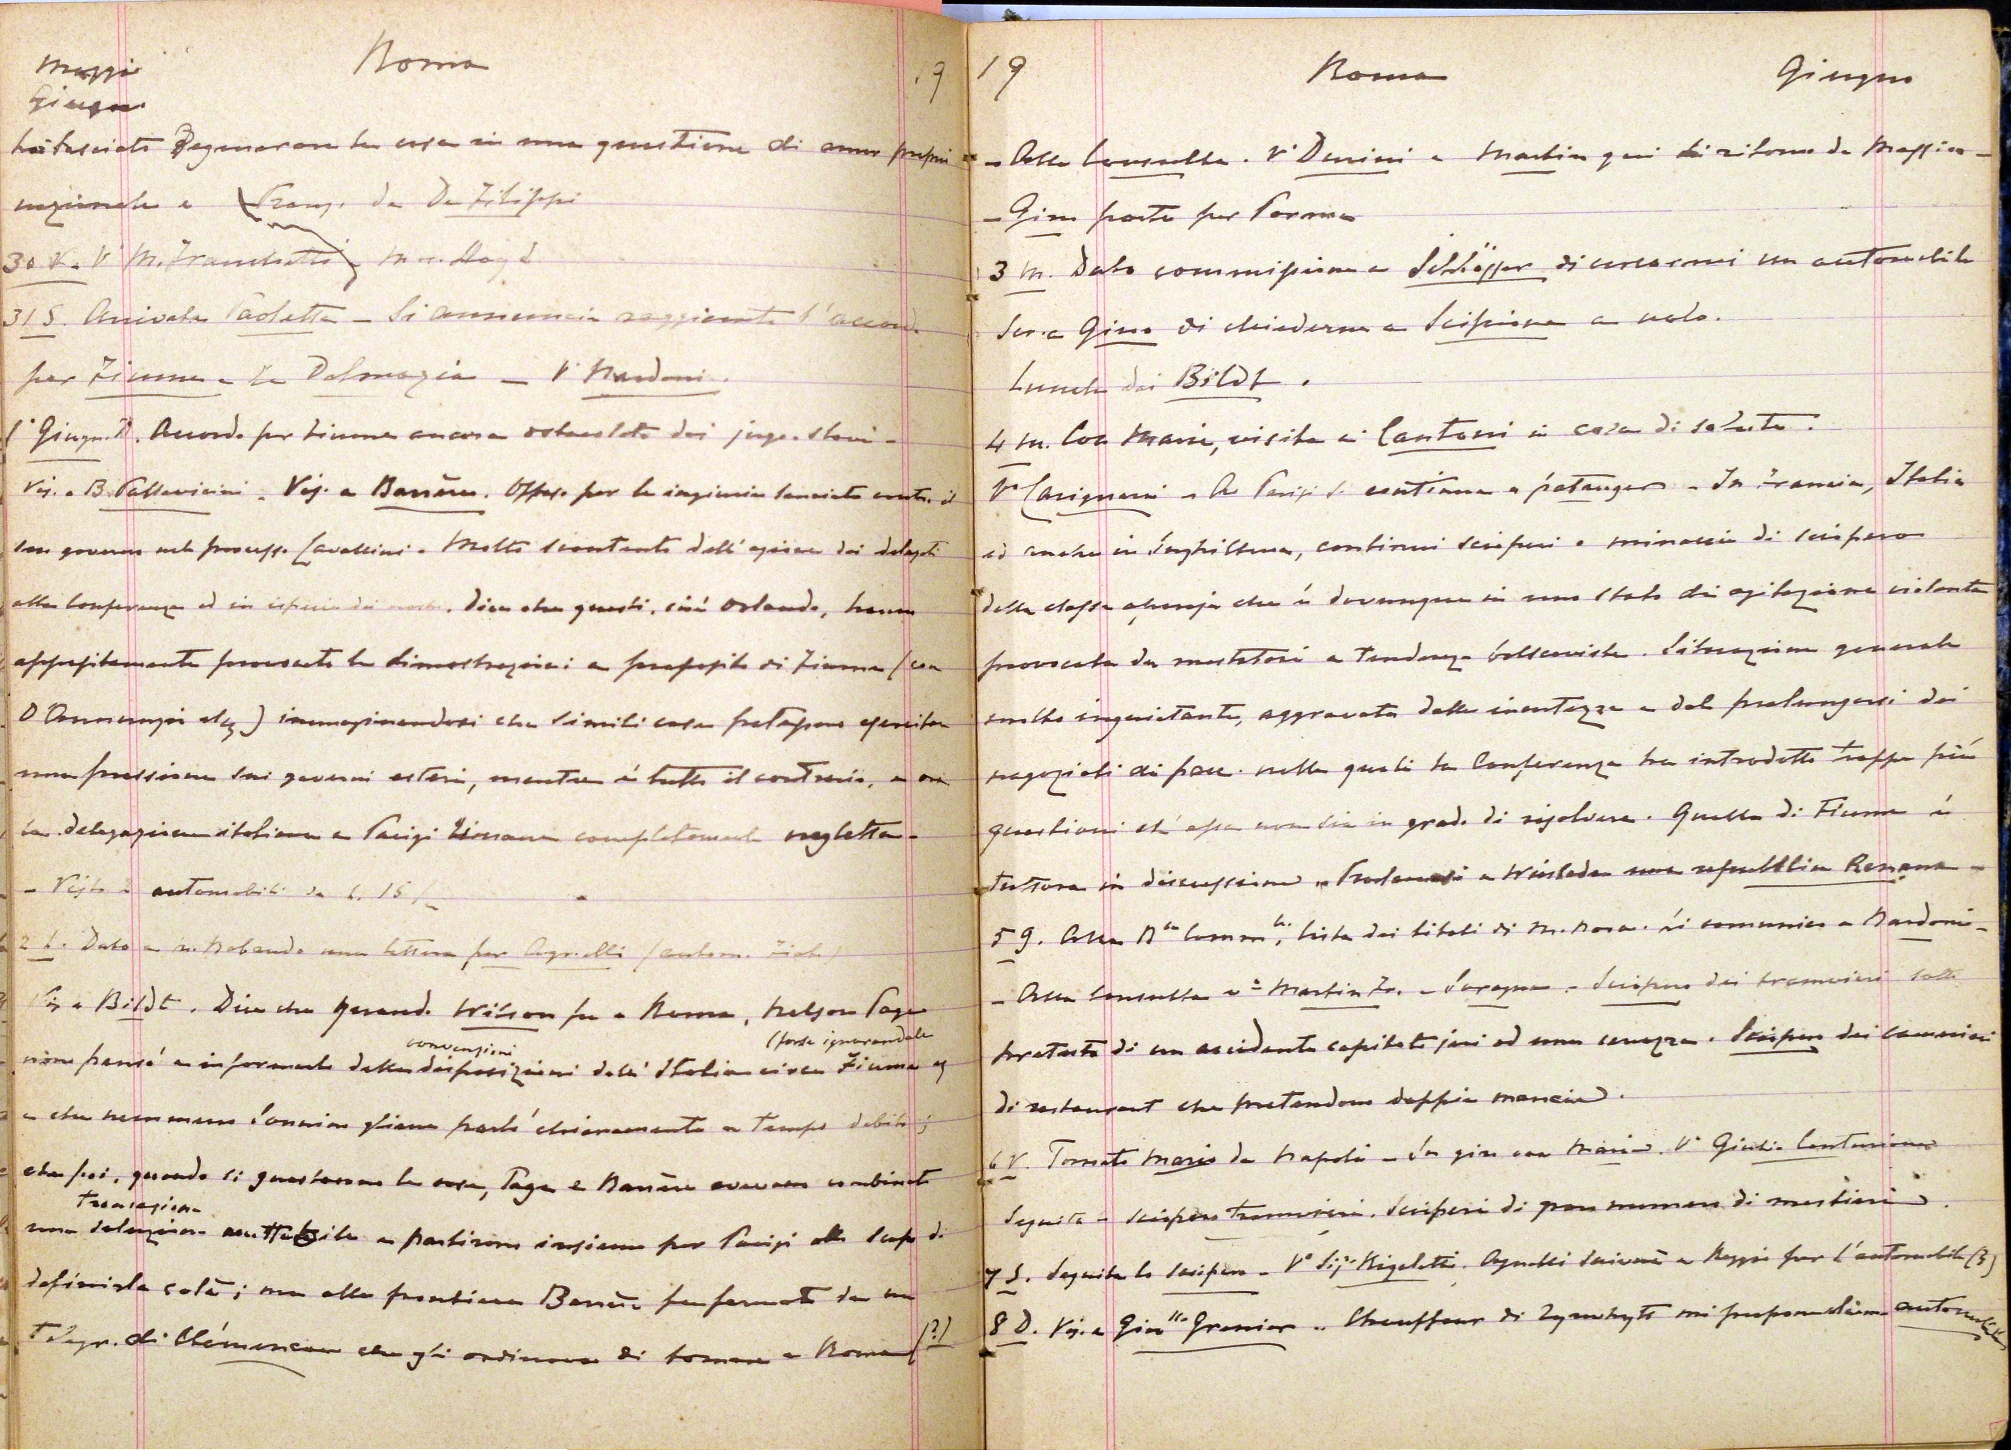 Maggio Roma 19
Giugno
ha lasciato degenerare la cosa in una questione di amor proprio
nazionale e Franz. da De Filippi
30 V. V° M. Franchetti e
31 S. Arrivata Paoletta – Si annuncia raggiunto l'accordo
per Fiume e la Dalmazia – V° Nardoni.
1° Giugno D. Accordo per Fiume ancora ostacolato dai jugo-slavi –
Vis. a B. Pallavicini – Vis. a Barrère. Offeso per le ingiurie lanciate contro il
suo governo nel processo Cavallini. Molto scontento dell'azione dei delegati
alla Conferenza ed in ispecie dei nostri. Dice che questi, cioè Orlando, hanno
appositamente provocato le dimostrazioni a proposito di Fiume (con
D'Annunzio etc) immaginandosi che simili cose potessero esercitare
una pressione sui governi esteri, mentre è tutto il contrario, e ora
la delegazione italiana a Parigi rimane completamente negletta –
– Visto automobili da L. 15/m
2 L. Dato a N. Nobando una lettera per Agnelli (autom. Fiat)
Vis. a Bildt. Dice che quando Wilson fu a Roma, Nelson Page
convenzioni (forse ignorandole
non pensò a informarlo delle disposizioni dell'Italia circa Fiume etc
e che nemmeno Sonnino gliene parlò chiaramente a tempo debito;
che poi, quando si guastarono le cose, Page e Barrère avevano combinato
transazione
una soluzione accettabile e partirono insieme per Parigi allo scopo di
definirla colà; ma alla frontiera Barrère fu fermato da un
telegr. di Clémenceau che gli ordinava di tornare a Roma (?)
19 Roma Giugno
– Alla Consulta. V° Durini e Martin qui di ritorno da Messico –
– Gino parte per Parma
3 M. Dato commissione a Schlösser di cercarmi un automobile
Scr. a Gino di chiederne a Scipione a nolo.
Lunch dai Bildt.
4 M. Con Marie, visita ai Cantoni in casa di salute.
V° Carignani – A Parigi si continua a patauger – In Francia, Italia
ed anche in Inghilterra, continui scioperi o minaccie di sciopero
della classe operaja che è dovunque in uno stato di agitazione violenta
provocata da mestatori a tendenze bolsceviche. Situazione generale
molto inquietante, aggravata dalle incertezze e dal prolungarsi dei
negoziati di pace nelle quali la Conferenza ha introdotto troppe più
questioni ch'essa non sia in grado di risolvere. Quella di Fiume è
tuttora in discussione – Proclamasi a Wiesbaden una repubblica Renana –
5 G. Alla Comm. lista dei titoli di M. Rosa. si comunica a Nardoni –
– Alla Consulta V° Martin Fr. – Soragna – Sciopero dei tramvieri sotto
pretesto di un accidente capitato jeri ad una vettura. Sciopero dei camerieri
di restaurant che pretendono doppia mancia.
6 V. Tornato Mario da Napoli – In giro con Marie. V° Giulia Centurione
Seguita – sciopero tramvieri. Scioperi di gran numero di mestieri.
7 S. Seguita lo sciopero – V° Sig.ra Rigoletti. Agnelli scriverà a Reggio per l'automobile (3)
8 D. Vis. a Grenier – Chauffeur di mi propone altro automobile